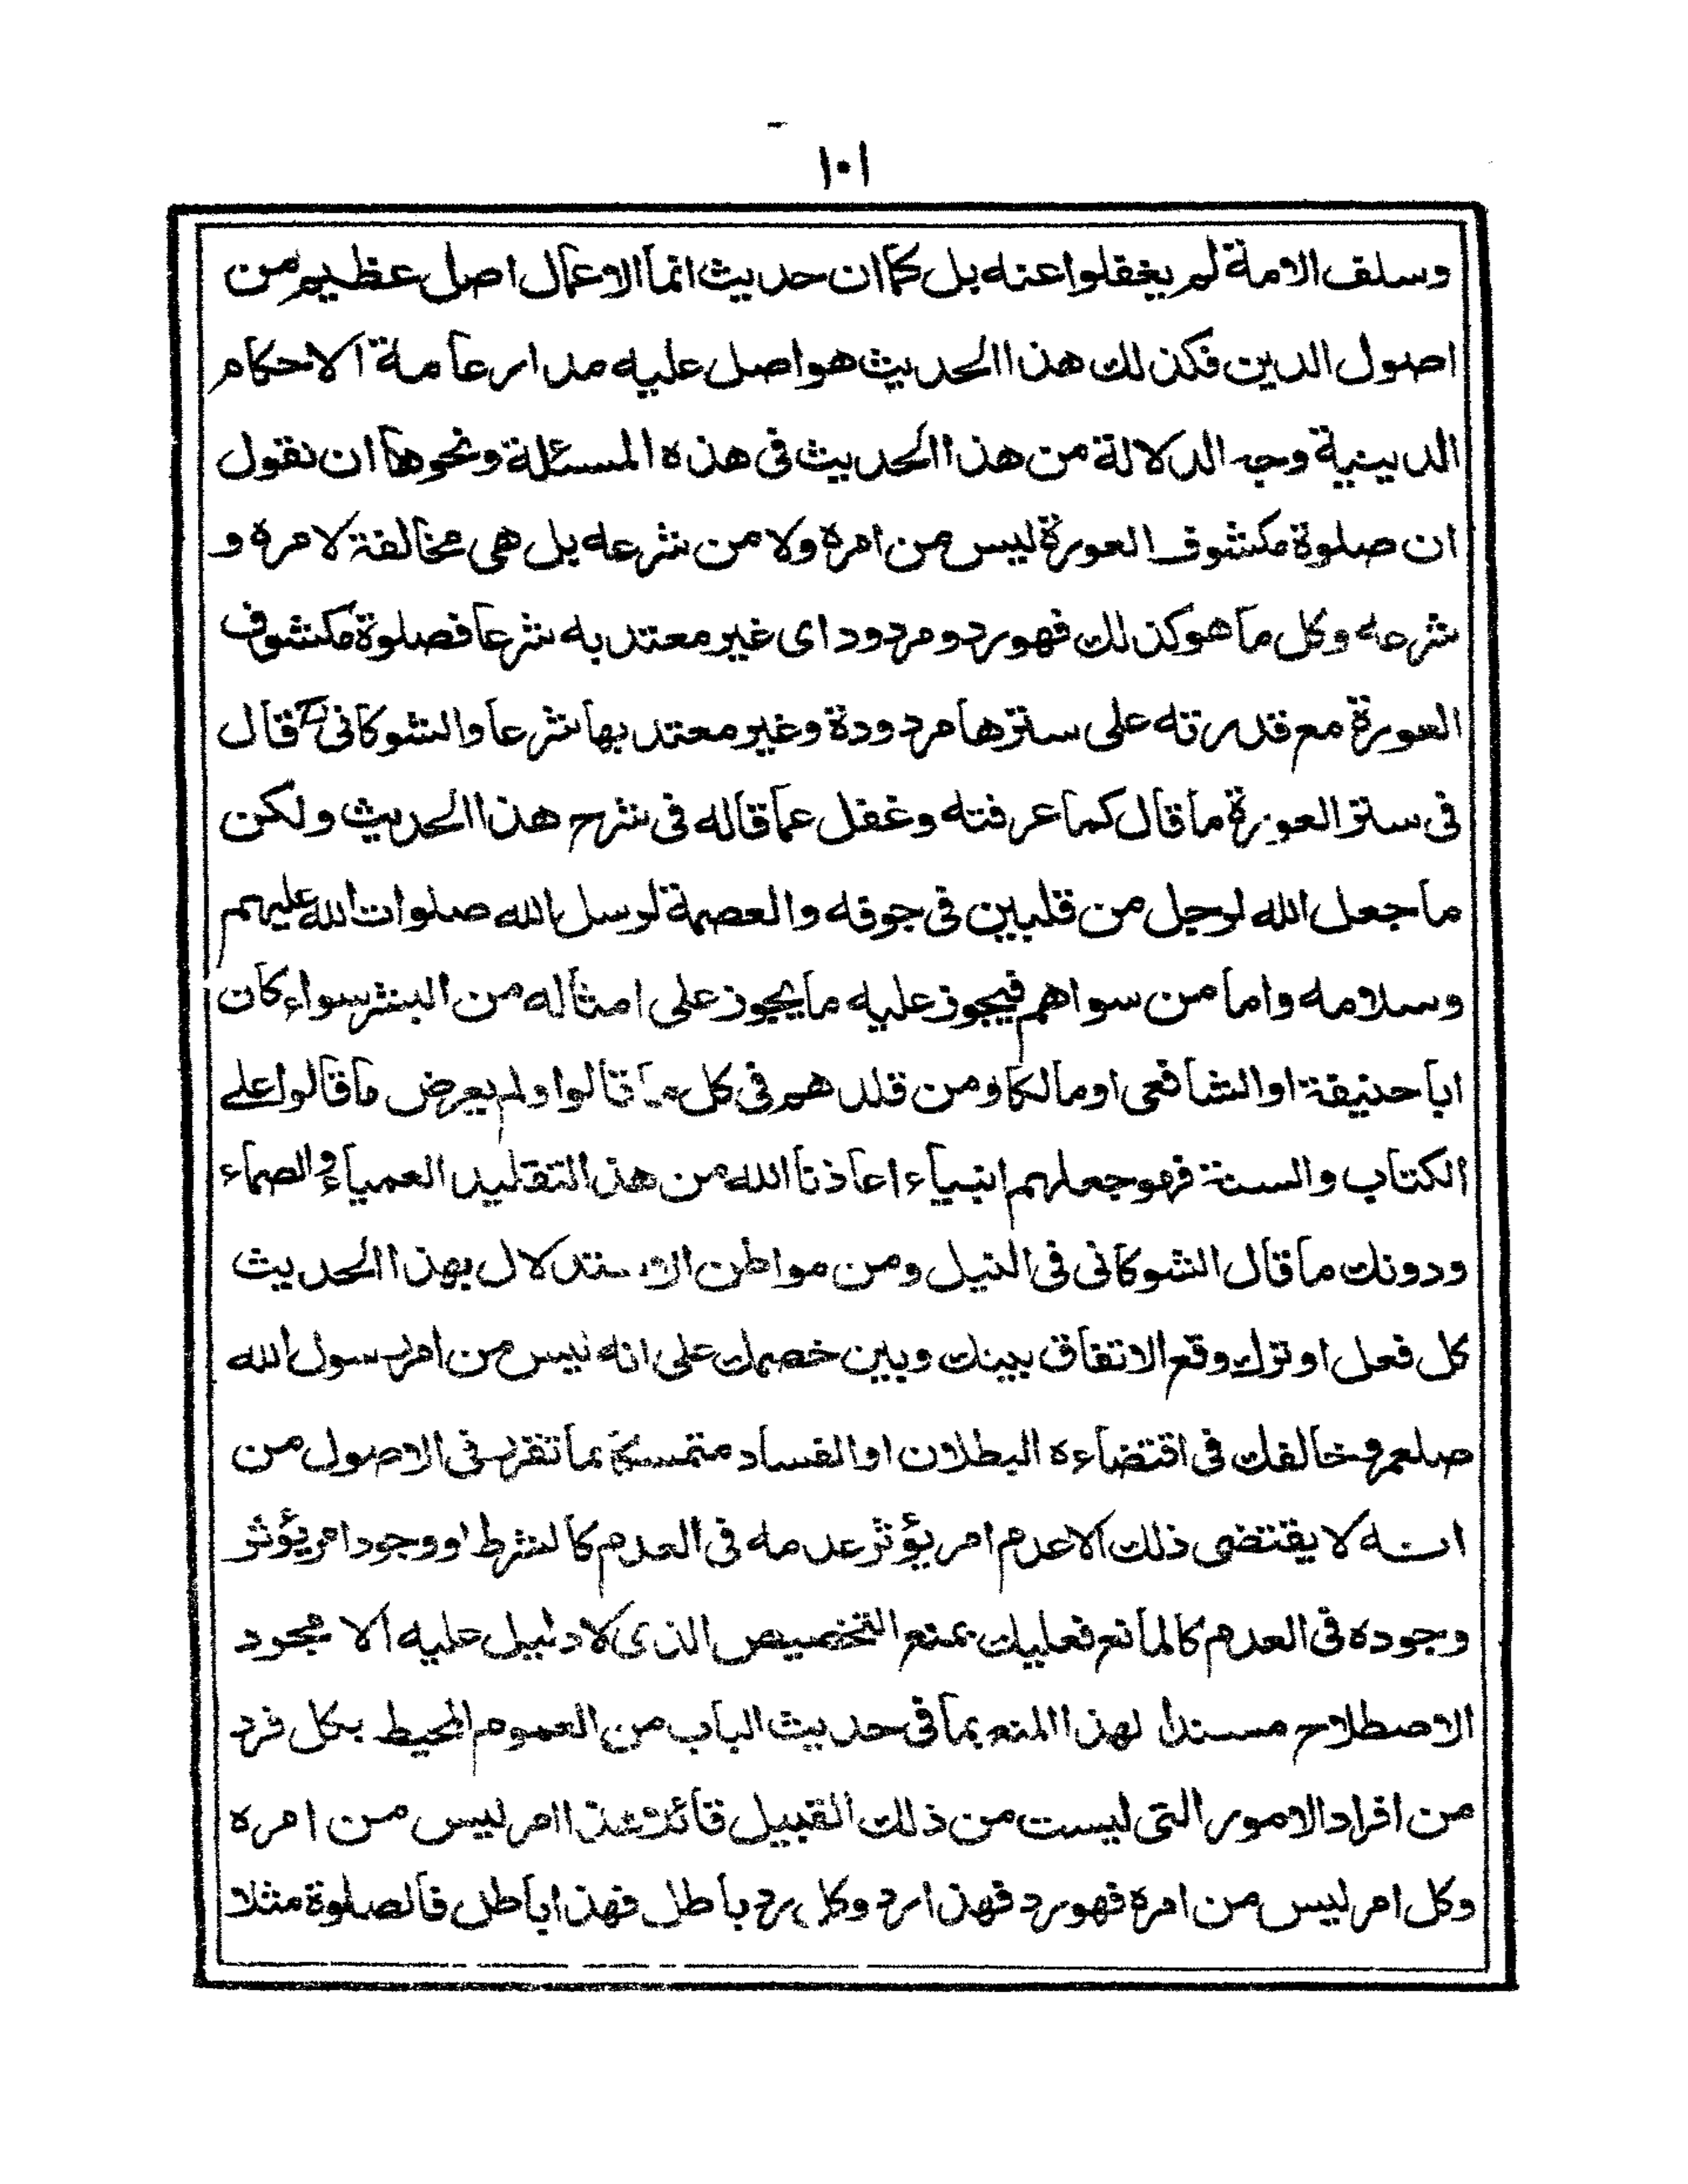 ١٠١
وسلف الامة لم يغفلوا عنه بل كما ان حديث انما الاعمال اصل عظيم من
اصول الدين فكذلك هذا الحديث هو اصل عليه مدار عامة الاحكام
الدينية وجه الدلالة من هذا الحديث فى هذه المسئلة ونحوها ان نقول
ان صلوة مكشوف العورة ليس من امره ولا من شرعه بل هى مخالفة لامره و
شرعه وكل ما هو كذلك فهو رد ومردود اى غير معتد به شرعا فصلوة مكشوف
العورة مع قدرته على سترها مردودة وغير معتد بها شرعا والشوكانى قال
فى ستر العورة ما قال كما عرفته وغفل عما قاله فى شرح هذا الحديث ولكن
ما جعل الله لرجل من قلبين فى جوفه والعصمة لرسل الله صلوات الله عليهم
وسلامه واما من سواهم فيجوز عليه ما يجوز على امثاله من البشر سواء كان
ابا حنيفة او الشافعى او مالكا ومن قلدهم فى كل ما قالوا ولم يعرض ما قالوا على
الكتاب والسنة فهو جعلهم انبياء اعاذنا الله من هذ التقليد العمياء والصماء
ودونك ما قال الشوكانى فى النيل ومن مواطن الاستدلال بهذا الحديث
كل فعل او ترك وقع الاتفاق بينك وبين خصمك على انه ليس من امر رسول الله
صلعم وخالفك فى اقتضاءه البطلان او الفساد متمسكا بما تقرر فى الاصول من
انه لا يقتضى ذلك الا عدم امر يؤثر عدمه فى العدم كالشرط او وجود امر يؤثر
وجوده فى العدم كالمانع فعليك بمنع التخصيص الذى لا دليل عليه الا مجرد
الاصطلاح مسندا لهذا المنع بما فى حديث الباب من العموم المحيط بكل فرد
من افراد الامور التى ليست من ذلك القبيل قائلا هذا امر ليس من امره
وكل امر ليس من امره فهو رد فهذا رد وكل رد باطل فهذا باطل فالصلوة مثلا